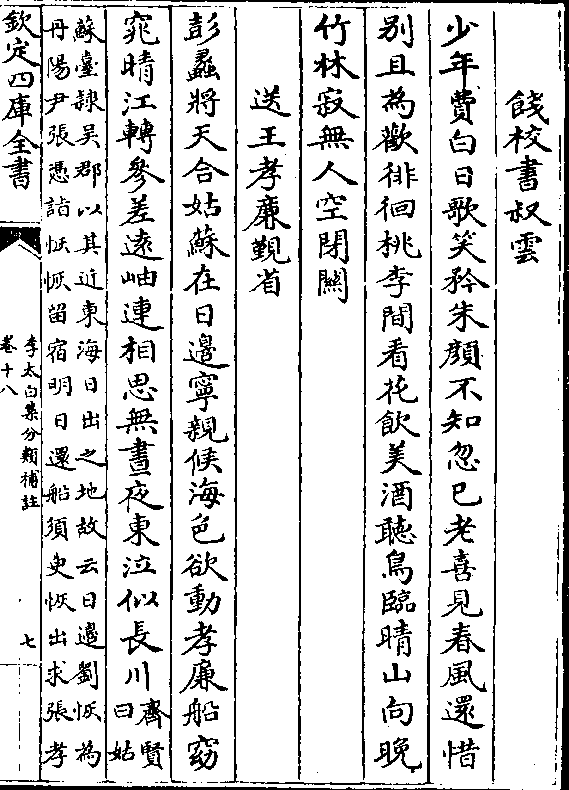 餞校書叔雲
少年費白日歌笑矜朱顔不知忽已老喜見春風還惜
别且為歡徘徊桃李間看花飲美酒聽鳥臨晴山向晚
竹林寂無人空閉關
送王孝廉覲省
彭蠡將天合姑蘇在日邊寧親候海色欲動孝廉船窈
窕晴江轉參差遠岫連相思無晝夜東泣似長川
齊賢
曰姑
蘇臺隸吴郡以其近東海日出之地故云日邉劉恢為
丹陽尹張憑詣恢恢留宿明日還船須臾恢出求張孝
欽定四庫全書
李太白集分類補註
卷十八
七